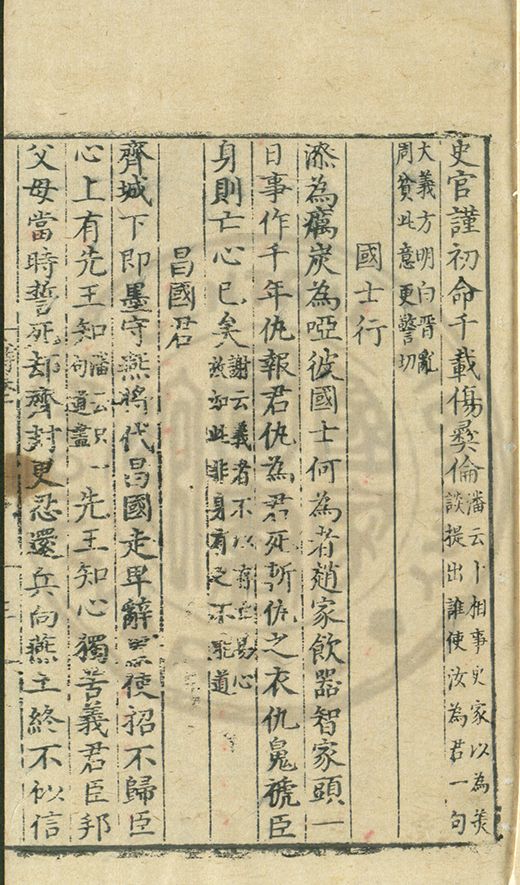 史官謹初命千載傷彞倫潘云卜相事史家以為美談提出誰使汝為君一句
大義方明白晋亂周貧此意更警切
國士行
漆為癘炭為啞彼國士何為者趙家飲器智家頭一
日事作千年仇報君仇為君死斬仇之衣仇鬼禠臣
身則亡心已矣謝云義者不以存亡易心故如此非身有之不能道
昌國君
齊城下即墨守燕將代昌國走卑辭使招不歸臣
心上有先王知潘云只一句道盡先王知心獨苦義君臣邦
父母當時誓死却齊封更忍還兵向燕土終不似信